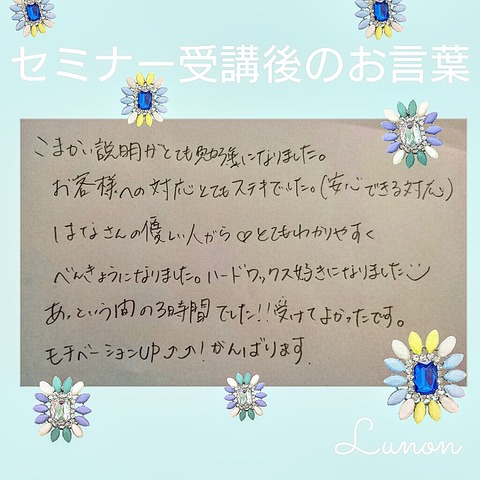 セミナー受講後のお言葉
こまかい説明がとても勉強になりました。
お客様への対応とてもステキでした。(安心できる対応)
はなさんの優しい人がら♡とてもわかりやすく
べんきょうになりました。ハードワックス好きになりました
あっという間の3時間でした!!受けてよかったです。
モチベーションUP↗↗!がんばります。
Lunon